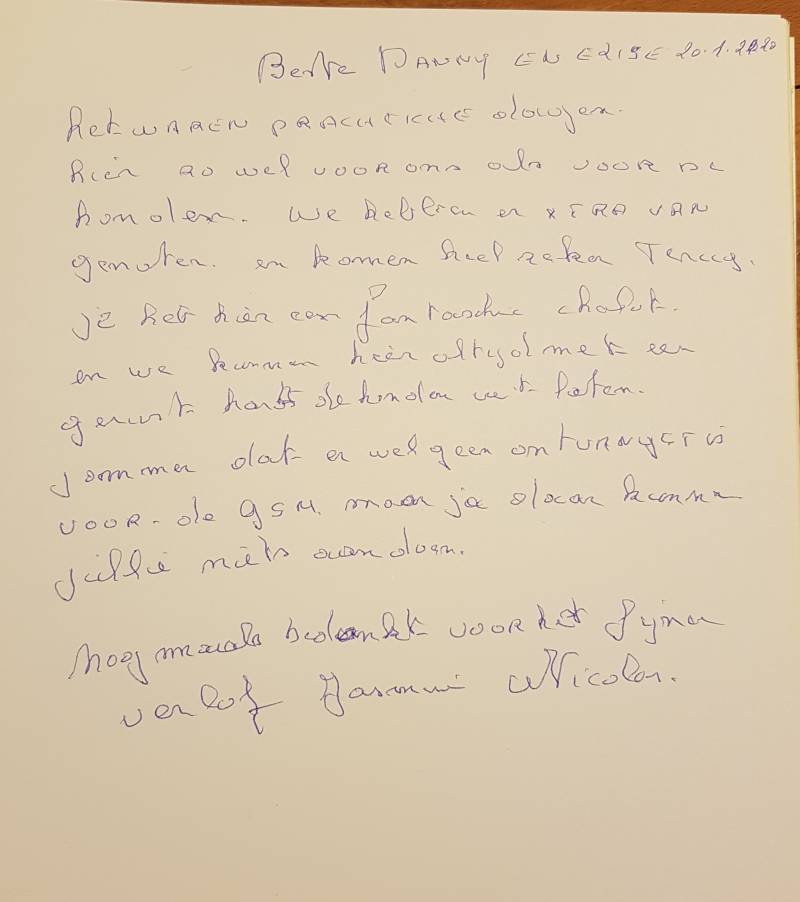 Beste DANNY EN ELISE 20.1.2020
het WAREN PRACHTIGE dagen.
hier zo wel VOOR ons als VOOR DE
honden. We hebben er XTRA VAN
genoten. en komen heel zeker Terug.
je het hier een fantasche chalet.
en we kunnen hier altyd met een
gerust hart de honden uit laten.
jommer dat er wel geen ontvangst is
VOOR de GSM. maar ja daar kunnen
jullie niets aan doen.
Nog maals bedankt VOOR het fyne
verlof